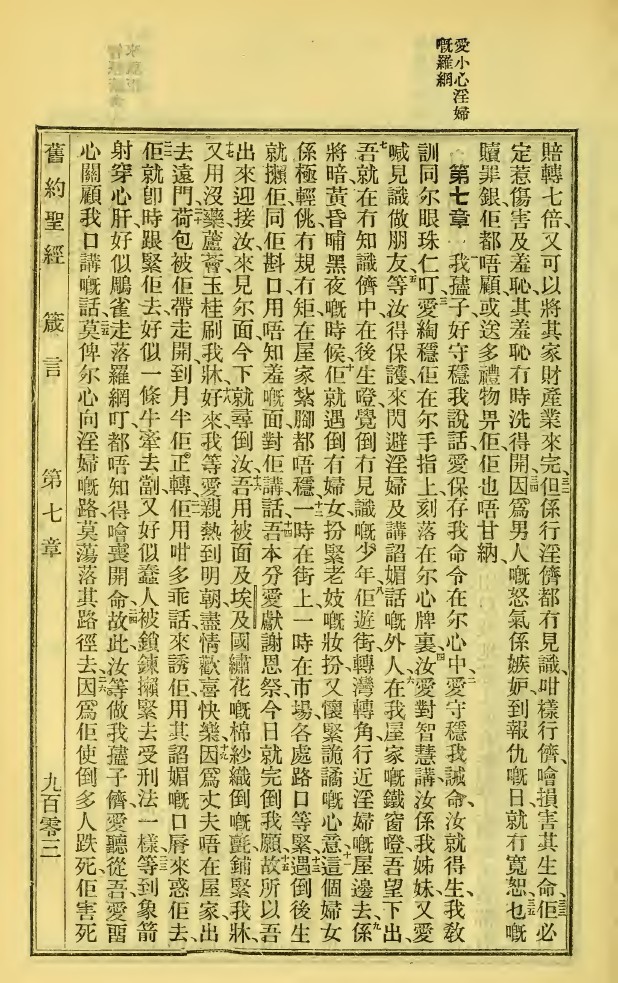 愛小心淫婦
嘅羅網
賠轉七倍、又可以將其家財產業來完、三二但係行淫儕都冇見識、咁樣行儕、噲損害其生命、三三佢必
定惹傷害及羞恥、其羞恥冇時洗得開、三四因爲男人嘅怒氣係嫉妒、到報仇嘅日就冇寬恕、三五也嘅
贖罪銀佢都唔顧、或送多禮物畀佢、佢也唔甘納、
第七章 一我孻子好守穩我說話、愛保存我命令在尔心中、二愛守穩我誡命、汝就得生、我教
訓同尔眼珠仁吖、三愛綯穩佢在尔手指上、刻落在尔心牌裏、四汝愛對智慧講、汝係我姊妹、又愛
喊見識做朋友、五等汝得保護、來閃避淫婦及講諂媚話嘅外人、六在我屋家嘅鐵窗磴、吾望下出、
七吾就在冇知識儕中、在後生磴、覺倒冇見識嘅少年、八佢遊街轉灣轉角、行近淫婦嘅屋邊去、九係
將暗黃昏晡黑夜嘅時候、十佢就遇倒冇婦女、扮緊老妓嘅妝扮、又懷緊詭譎嘅心意、十一這個婦女
係極輕佻、冇規冇矩、在屋家紮腳都唔穩、十二一時在街上、一時在市場、各處路口等緊、十三遇倒後生
就攋佢、同佢斟口、用唔知羞嘅面對佢講話、十四吾本分愛獻謝恩祭、今日就完倒我願、十五故所以吾
出來迎接汝、來見尔面、今下就尋倒汝、十六吾用被面及埃及國繡花嘅棉紗織倒嘅氈鋪緊我牀、
十七又用沒藥蘆薈玉桂刷我牀、十八好來、我等愛親熱到明朝、盡情歡喜快樂、十九因爲丈夫唔在屋家、出
去遠門、二十荷包被佢帶走開、到月半佢正轉、二一佢用咁多乖話來誘佢、用其諂媚嘅口唇來惑佢去、
二二佢就卽時跟緊佢去、好似一條牛牽去劏、又好似蠢人被鎖鍊攋緊去受刑法一樣、二三等到象箭
射穿心肝、好似鵰雀走落羅網吖、都唔知得噲喪開命、二四故此汝等做我孻子儕、愛聽從吾、愛畱
心關顧我口講嘅話、二五莫俾尔心向淫婦嘅路、莫蕩落其路徑去、二六因爲佢使倒多人跌死、佢害死
舊約聖經 箴言 第七章 九百零三